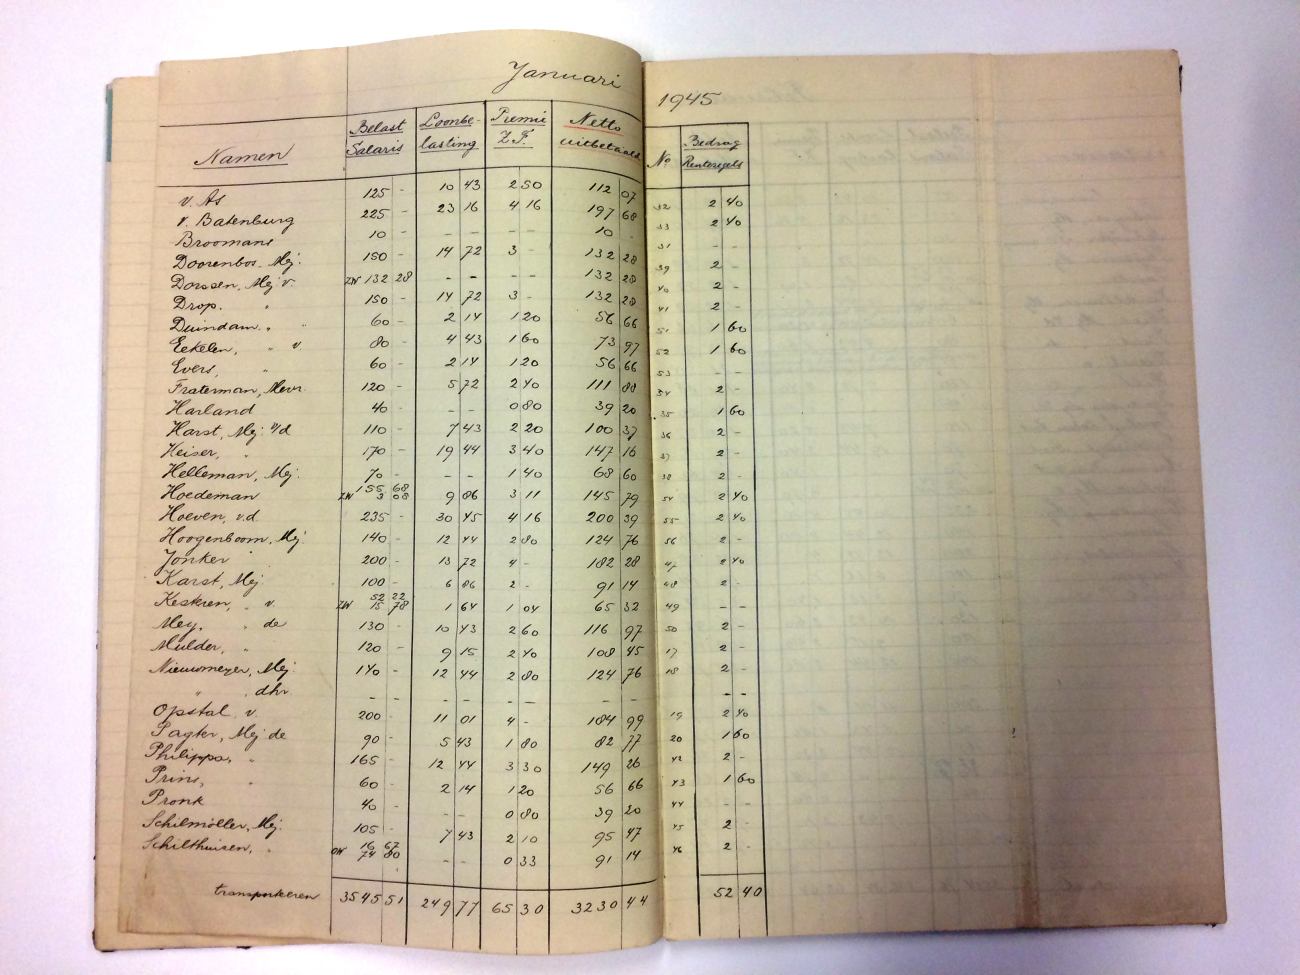 Januari 1945
Namen Belast Salaris Loonbe- lasting Premie Z.F. Netto uitbetaald No Bedrag Renteregels
v. As 125 - 10 43 2 50 112 07 32 2 40
v. Batenburg 225 - 23 16 4 16 197 68 33 2 40
Broomans 10 - - - - - 10 - 31 - -
Doorenbos, Mej. 150 - 14 72 3 - 132 28 39 2 -
Dorssen, Mej. v. ZW 132 28 - - - - 132 28 40 2 -
Drop. " 150 - 14 72 3 - 132 28 41 2 -
Duindam, " " 60 - 2 14 1 20 56 66 51 1 60
Eekelen, " v. 80 - 4 43 1 60 73 97 52 1 60
Evers, " 60 - 2 14 1 20 56 66 53 - -
Fraterman, Mevr. 120 - 5 72 2 40 111 88 34 2 -
Harland 40 - - - 0 80 39 20 35 1 60
Harst, Mej. v/d 110 - 7 43 2 20 100 37 36 2 -
Keiser, " 170 - 19 44 3 40 147 16 37 2 -
Helleman, Mej. 70 - - - 1 40 68 60 38 2 -
Hoedeman 155 68 ZW 3 08 9 86 3 11 145 79 54 2 40
Hoeven, v.d. 235 - 30 45 4 16 200 39 55 2 40
Hoogenboom, Mej. 140 - 12 44 2 80 124 76 56 2 -
Jonker 200 - 13 72 4 - 182 28 47 2 40
Karst, Mej. 100 - 6 86 2 - 91 14 48 2 -
Keskren, " v. 52 22 ZW 15 78 1 64 1 04 65 32 49 - -
Mey, " de 130 - 10 43 2 60 116 97 50 2 -
Mulder, " 120 - 9 15 2 40 108 45 17 2 -
Nieuwmeyer, Mej. 140 - 12 44 2 80 124 76 18 2 -
" , dhr. - - - - - - - - - -
Opstal v. 200 - 11 01 4 - 184 99 19 2 40
Sagter, Mej. de 90 - 5 43 1 80 82 77 20 1 60
Philippo, " 165 - 12 44 3 30 149 26 42 2 -
Prins, " 60 - 2 14 1 20 56 66 43 1 60
Pronk 40 - - - 0 80 39 20 44 - -
Schilmöller, Mej. 105 - 7 43 2 10 95 47 45 2 -
Schilthuizen, " 16 67 OW 74 80 - - 0 33 91 14 46 2 -
transporteren 3545 51 249 77 65 30 3230 44 52 40